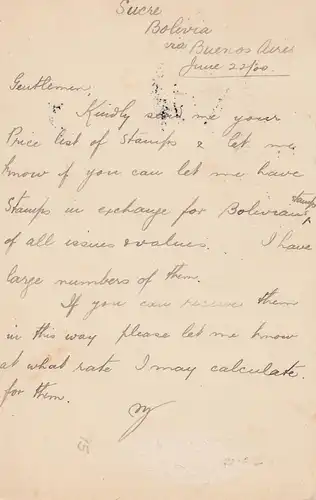 Sucre
Bolivia
via Buenos Aires
June 22/00.
Gentlemen,
Kindly send me your
Price list of Stamps & let me
know if you can let me have
Stamps in exchange for Bolivian stamps
of all issues & values. I have
large numbers of them.
If you can receive them
in this way please let me know
at what rate I may calculate
for them.